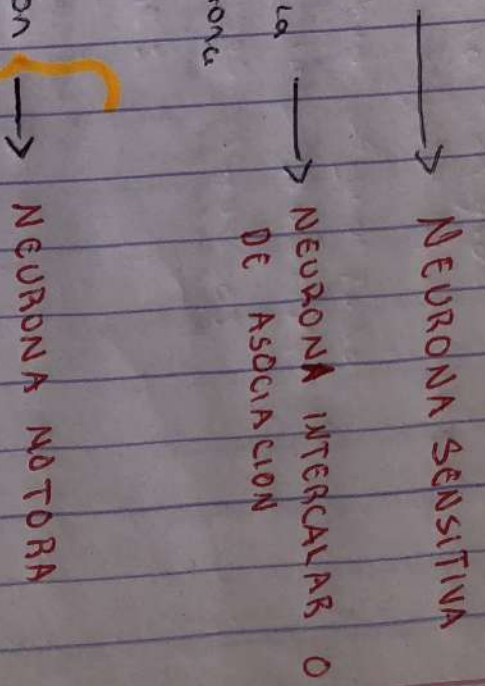 NEURONA SENSITIVA
la
NEURONA INTERCALAR O
DE ASOCIACION
NEURONA MOTORA